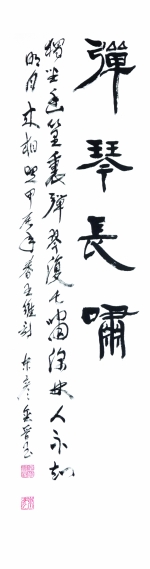 彈琴長嘯
獨坐幽篁裏彈琴復長嘯深林人不知
明月來相照甲辰年春王維詩